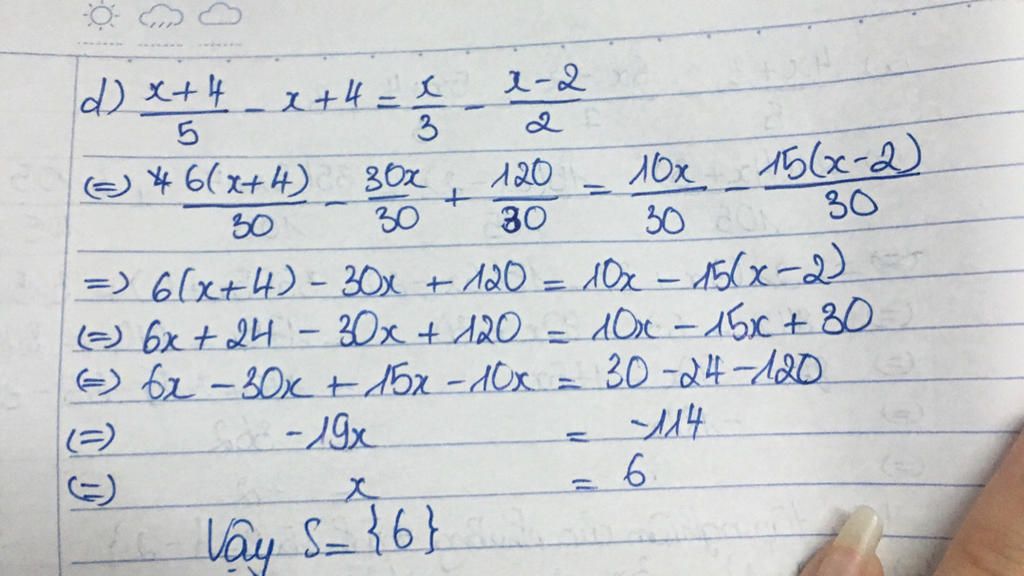 d) (x+4)/5 - x + 4 = x/3 - (x-2)/2
(=) 6(x+4)/30 - 30x/30 + 120/30 = 10x/30 - 15(x-2)/30
=) 6(x+4) - 30x + 120 = 10x - 15(x-2)
(=) 6x + 24 - 30x + 120 = 10x - 15x + 30
(=) 6x - 30x + 15x - 10x = 30 - 24 - 120
(=) -19x = -114
(=) x = 6
Vậy S = {6}